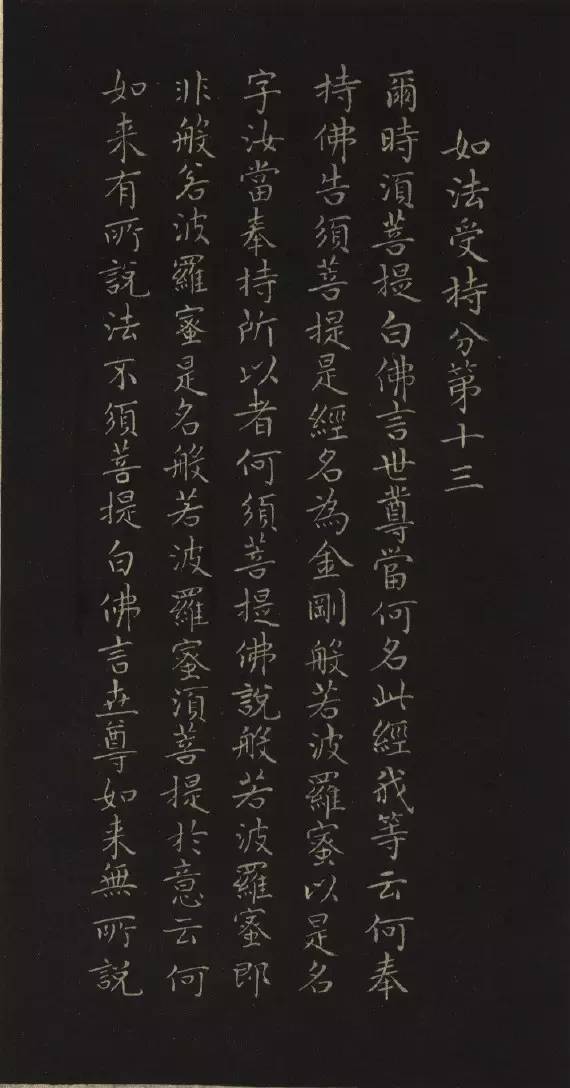 如法受持分第十三
爾時須菩提白佛言世尊當何名此經我等云何奉
持佛告須菩提是經名為金剛般若波羅蜜以是名
字汝當奉持所以者何須菩提佛說般若波羅蜜即
非般若波羅蜜是名般若波羅蜜須菩提於意云何
如来有所說法不須菩提白佛言世尊如来無所說